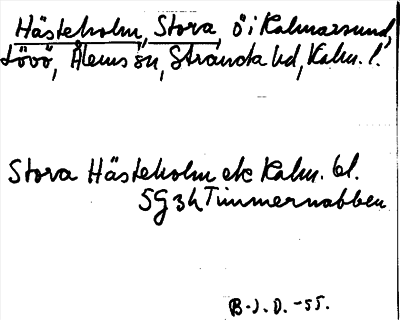 Hästeholm, Stora, ö i Kalmarsund,
Lövö, Ålems sn, Stranda hd, Kalm. l.
Stora Hästeholm ek Kalm. bl.
5G3h Timmernabben
B.J.D. -55.